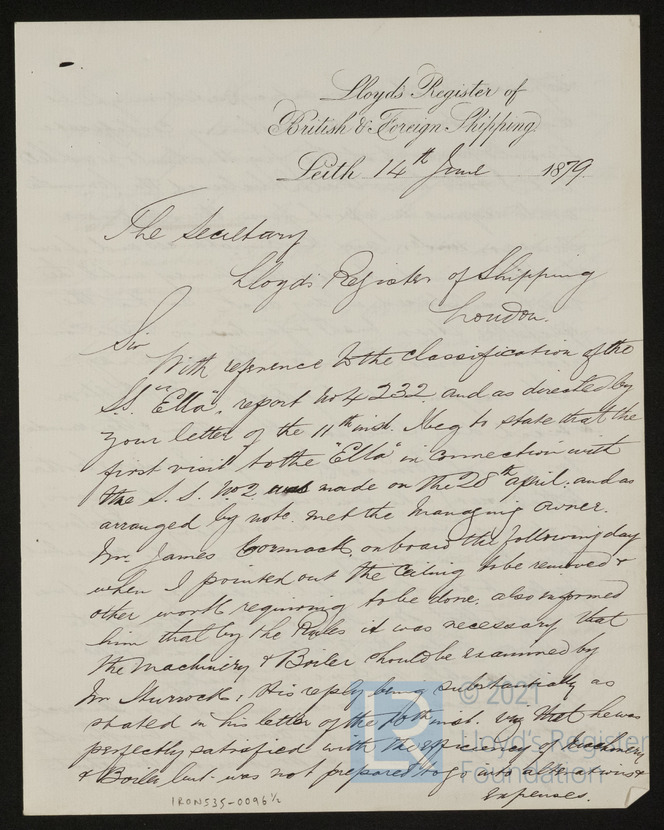 Lloyd's Register of
British & Foreign Shipping.
Leith 14th June 1879.
The Secretary
Lloyds Register of Shipping
London.
Sir
With reference to the classification of the
S.S. "Ella", report No 4232, and as directed by
your letter of the 11th inst. I beg to state that the
first visit to the "Ella" in connection with
the S.S. No 2 was made on the 28th April, and as
arranged by note met the Managing owner.
Mr James Cormack, onboard the following day
when I pointed out the Ceiling to be removed &
other work requiring to be done, also informed
him that by the Rules it was necessary that
the Machinery & Boiler should be examined by
Mr Murrock, His reply being substantially as
stated in his letter of the 10th inst. viz, that he was
perfectly satisfied with the efficiency of Machinery
& Boiler, but was not prepared to go into alterations &
expenses.
© 2021
Lloyd's Register
Foundation
IRON535-0096 1/2